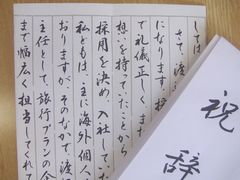 しては
さて、渡
ります。接
で礼儀正しく、また
想いを持ってたことから
採用を決め、入社して、た
私どもは、主に海外個人
おりますが、そのなかで、渡
主任として、旅行プランの企
まで幅広く担当してくれて
祝辞